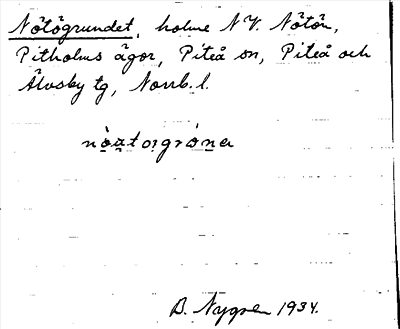 Nötögrundet, holme N.V. Nötön,
Pitholms ägor, Piteå sn, Piteå och
Älvsby tg, Norrb. l.
B. Nygren 1934.